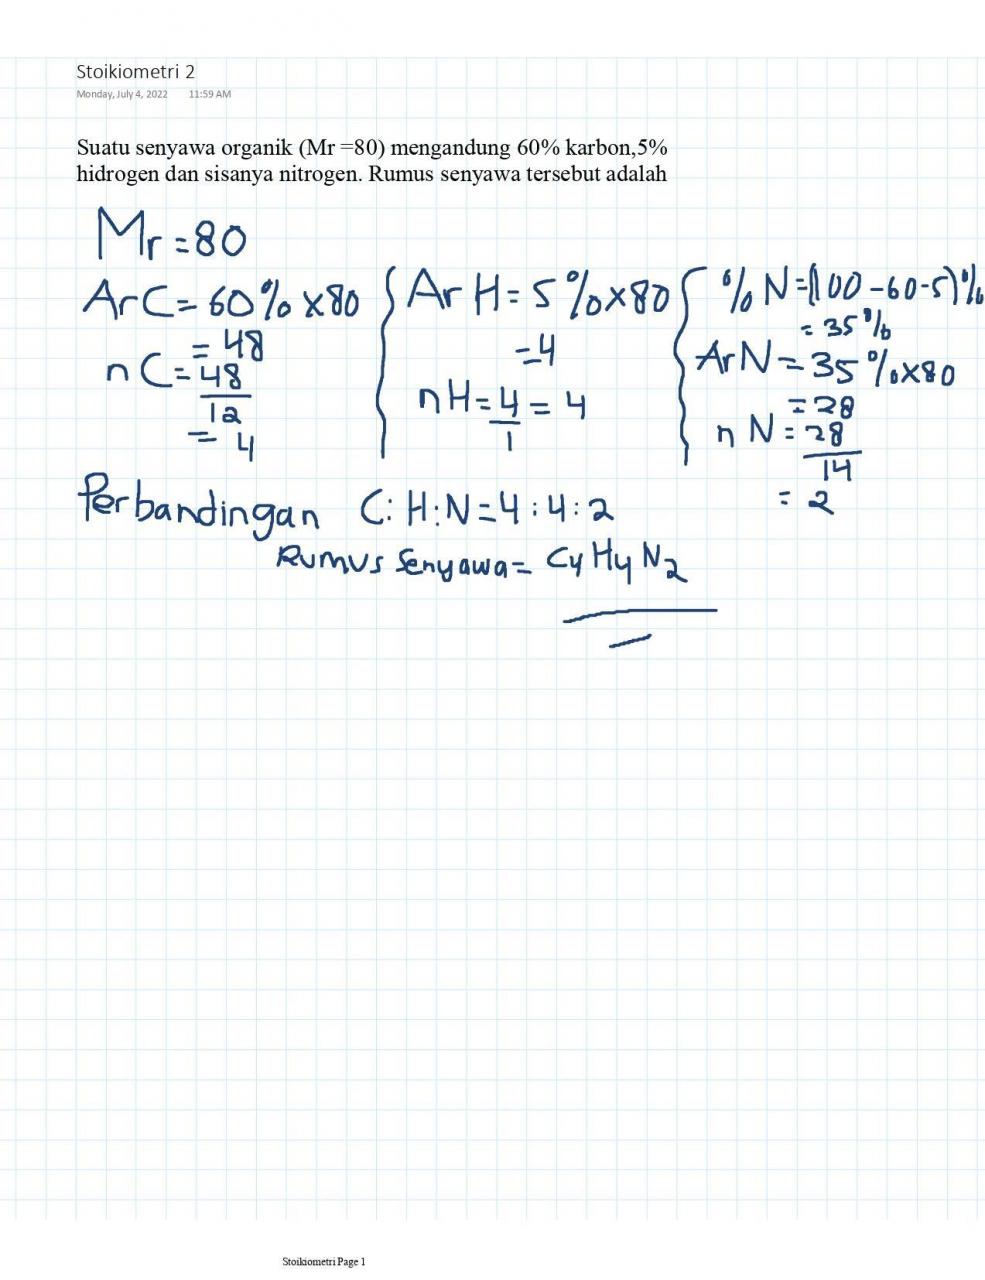 Stoikiometri 2
Monday, July 4, 2022 11:59 AM
Suatu senyawa organik (Mr =80) mengandung 60% karbon,5%
hidrogen dan sisanya nitrogen. Rumus senyawa tersebut adalah
Mr = 80
Ar C = 60% x 80
= 48
n C = 48
12
= 4
Ar H = 5% x 80
= 4
nH = 4 = 4
1
% N = (100 - 60 - 5)%
= 35%
Ar N = 35% x 80
= 28
n N = 28
14
= 2
Perbandingan C : H : N = 4 : 4 : 2
Rumus Senyawa = C4 H4 N2
Stoikiometri Page 1